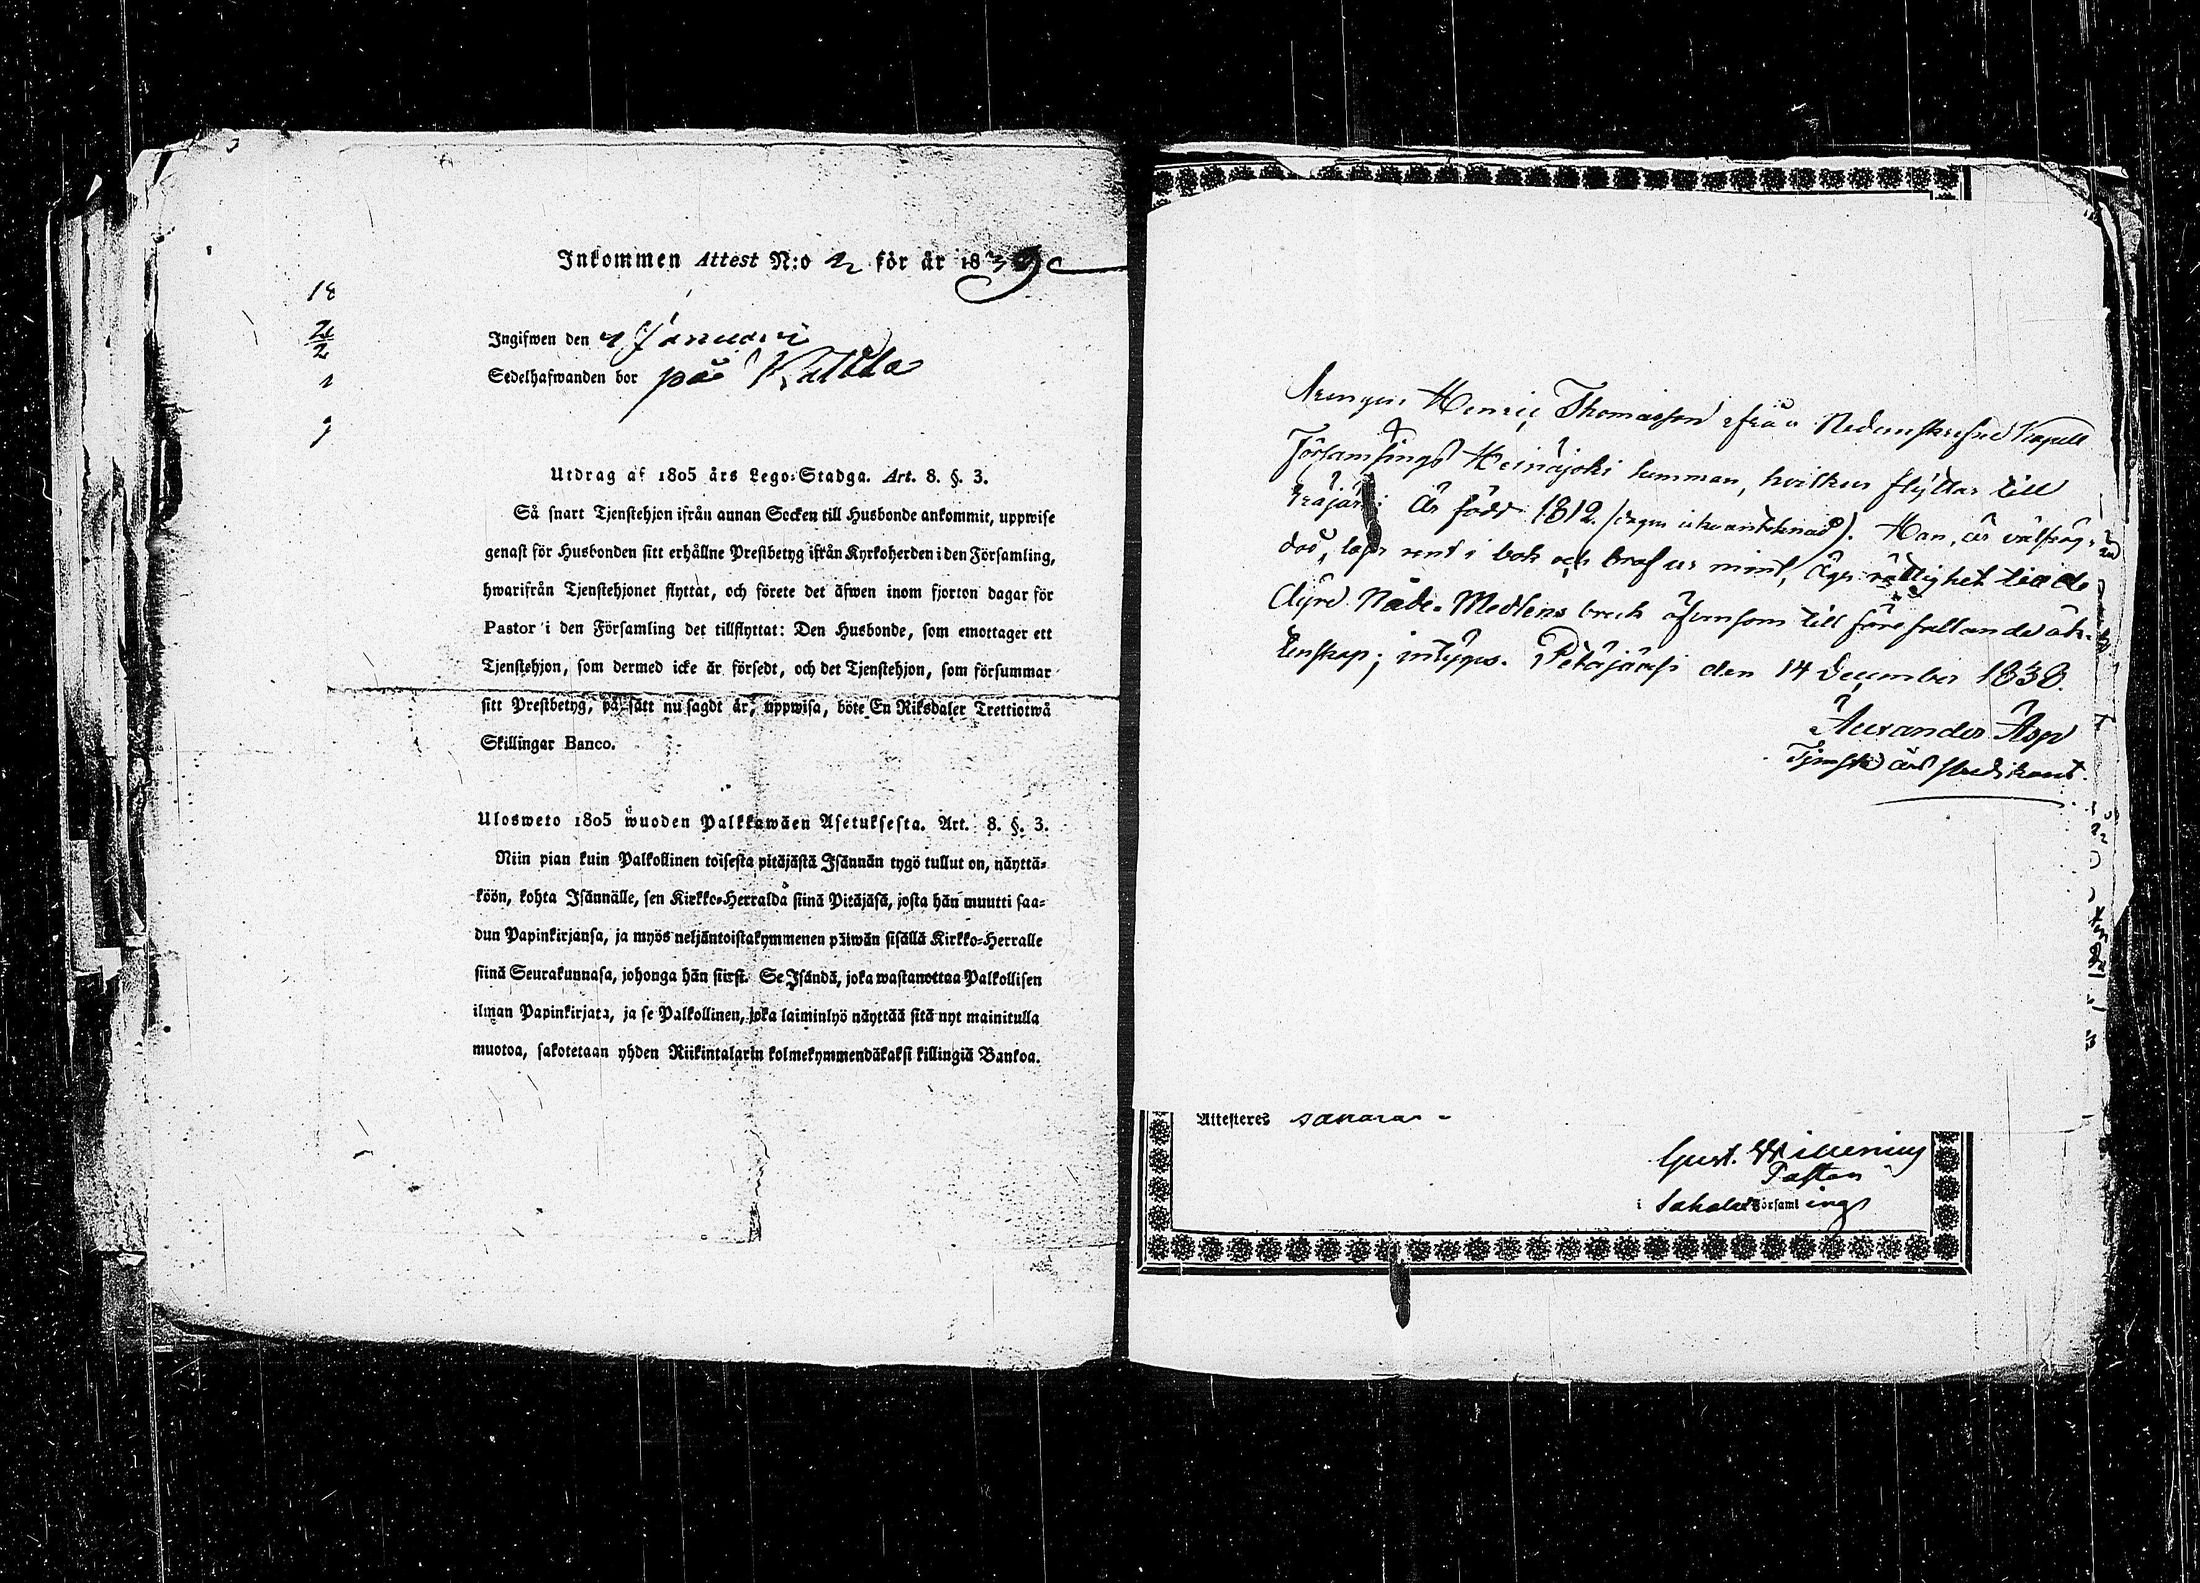 Inkommen Attest N:o 2 för år 1839
18
2/2
1
9
Ingifwen den 4 Januari
Sedelhafwanden bor på
Utdrag af 1805 års Lego-Stadga. Art. 8. §. 3.
Så snart Tjenstehjon ifrån annan Socken till Husbonde ankommit, uppwise
genast för Husbonden sitt erhållne Prestbetyg ifrån Kyrkoherden i den Församling,
hwarifrån Tjenstehjonet flyttat, och förete det äfwen inom fjorton dagar för
Pastor i den Församling det tillflyttat: Den Husbonde, som emottager ett
Tjenstehjon, som dermed icke är försedt, och det Tjenstehjon, som försummar
sitt Prestbetyg, på sätt nu sagdt är, uppwisa, böte En Riksdaler Trettiotwå
Skillingar Banco.
Ulosweto 1805 wuoden Palkkawäen Asetuksesta. Art. 8. §. 3.
Niin pian kuin Palkollinen toisesta pitäjästä Isännän tygö tullut on, näyttä-
köön, kohta Isännälle, sen Kirkko-Herralda siinä Pitäjäsä, josta hän muutti saa-
dun Papinkirjansa, ja myös neljäntoistakymmenen päiwän sisällä Kirkko-Herralle
siinä Seurakunnasa, johonga hän siirsi. Se Isändä, joka wastanottaa Palkollisen
ilman Papinkirjata, ja se Palkollinen, joka laiminlyö näyttää sitä nyt mainitulla
muotoa, sakotetaan yhden Riikintalarin kolmekymmendäkaksi killingiä Bankoa.
Drengen Henric Thomasson ifrån Nedanskrefne Kapell
Församlings Heinäjoki hemman, hvilken flyttar till
är född 1812. (dagen icke antecknad). Han, är välfräg-
dad, läser rent i bok och braf ur mint, äger rättighet till de
dyre Nåde-Medlens bruk äfvensom till före fallande äk-
tenskap; intygas. Petäjäresi den 14 December 1838.
Alexander Asp
Attesteres
Gust.
Pastor
i Församlings